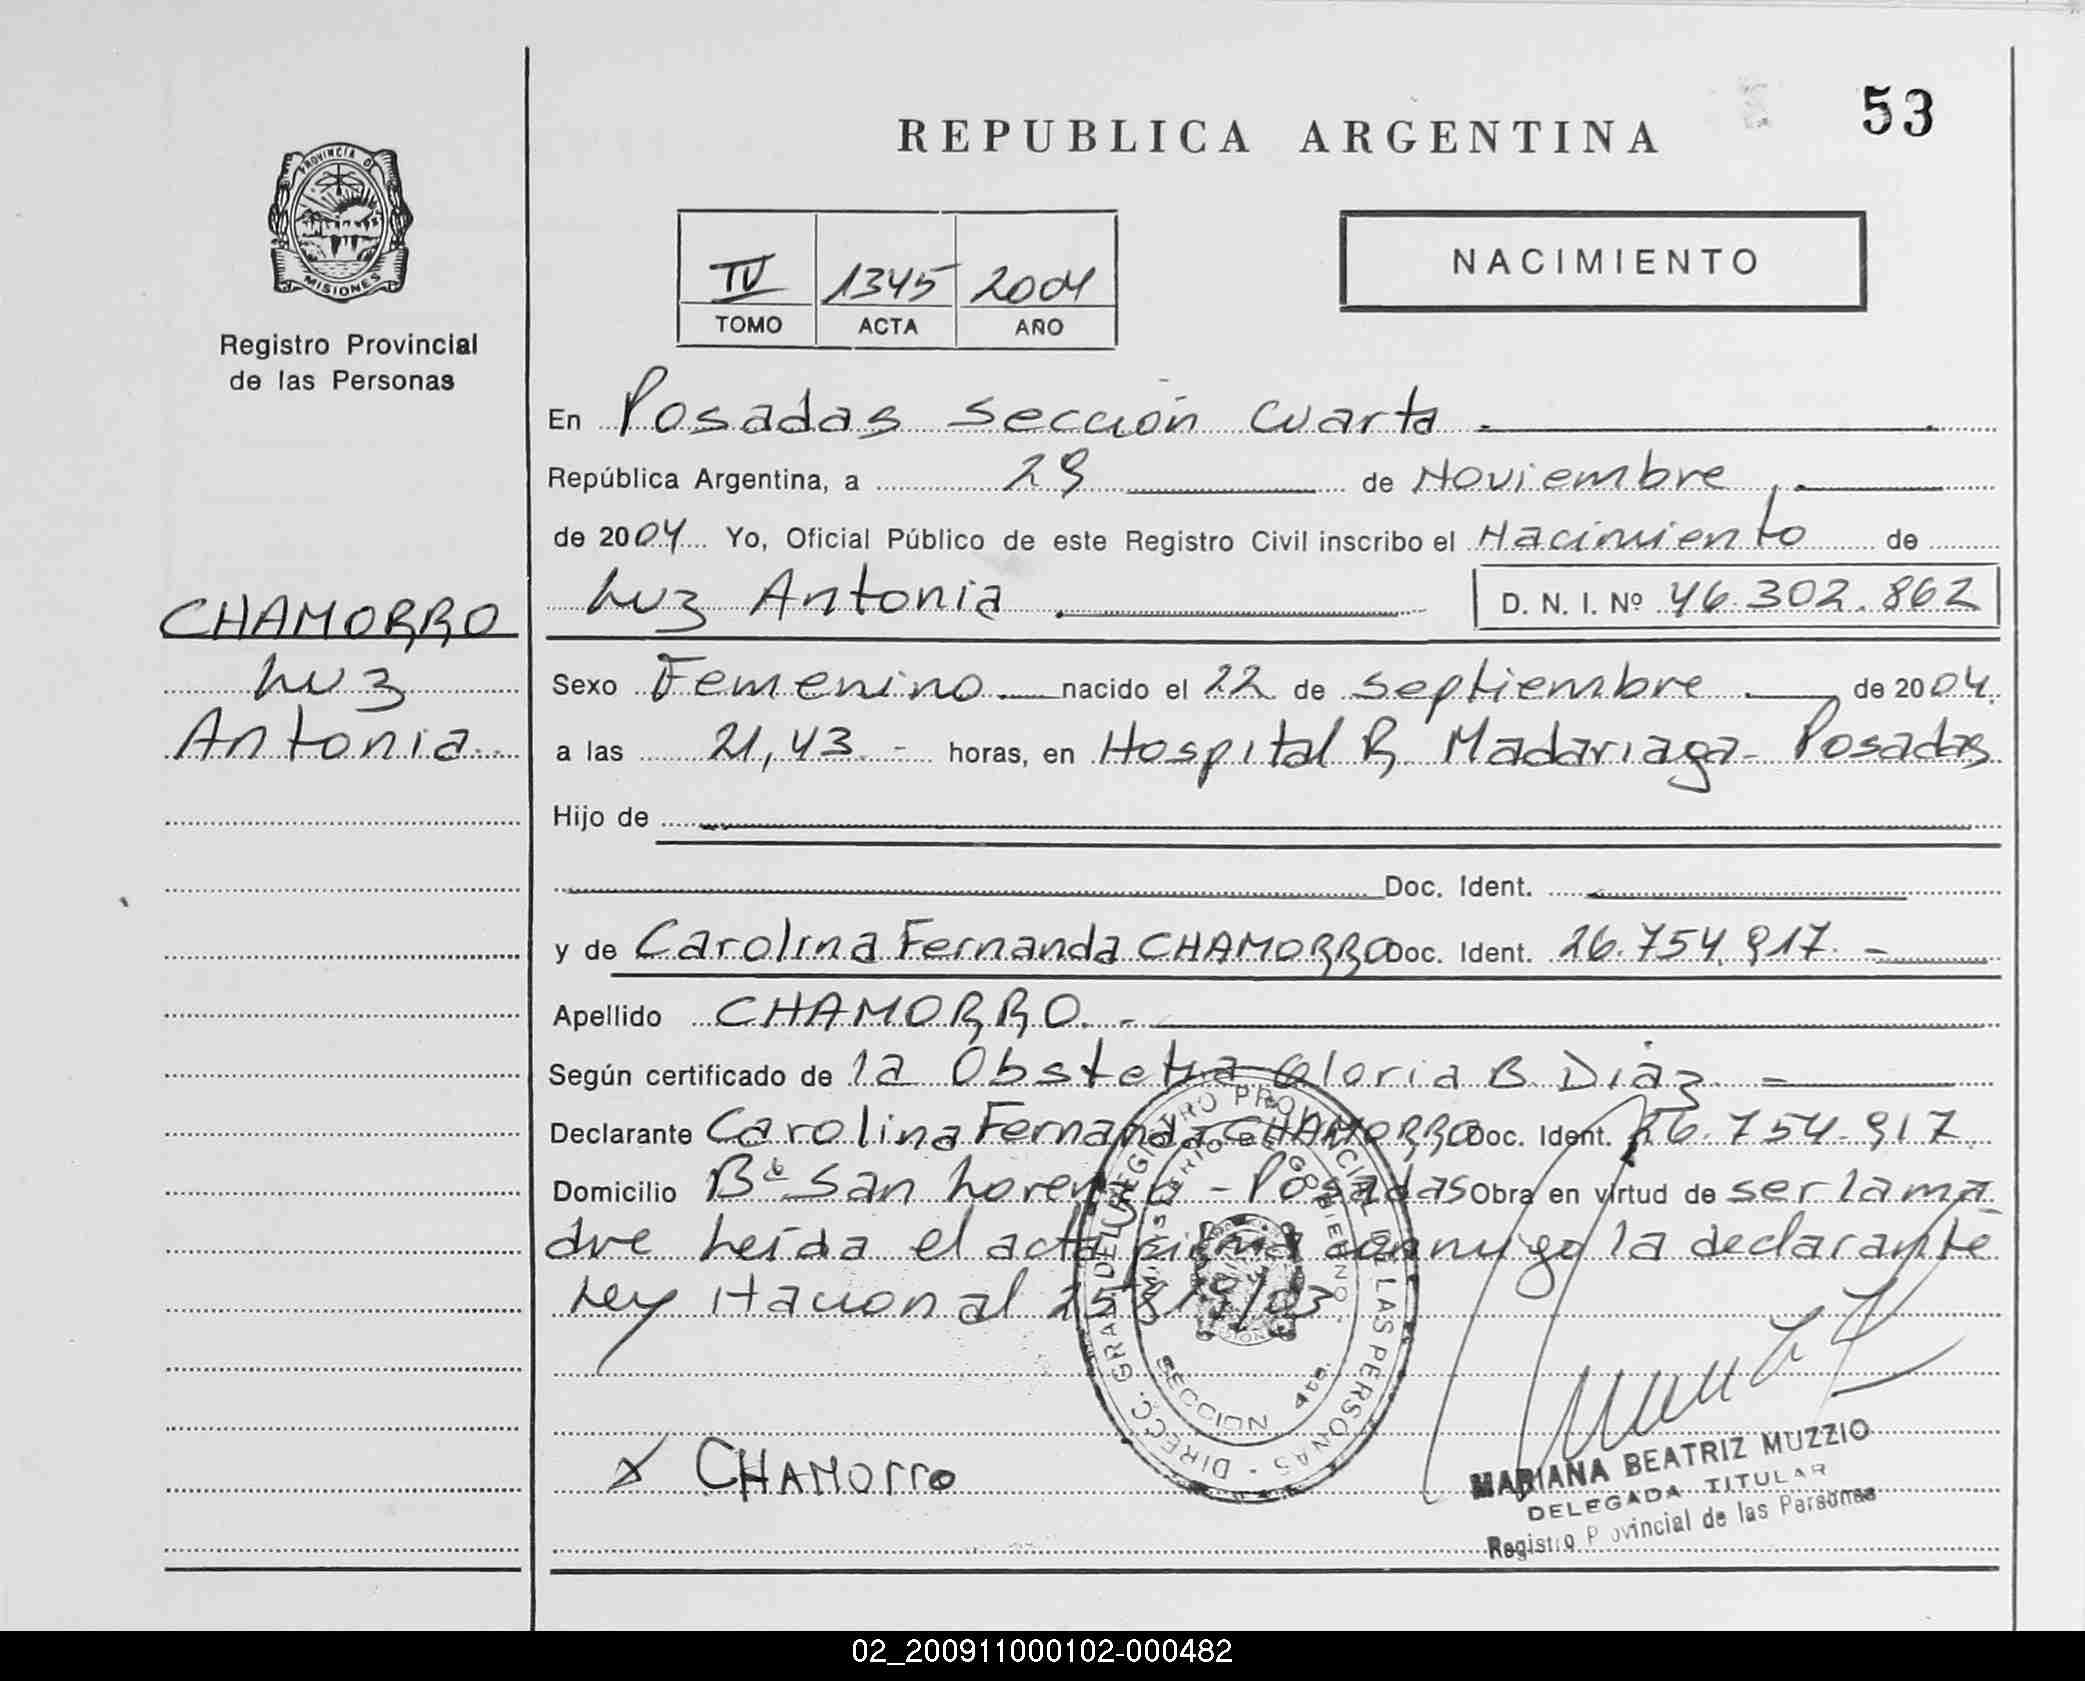 53
REPUBLICA ARGENTINA
PROVINCIA DE
MISIONES
Registro Provincial
de las Personas
NACIMIENTO
IV 1345 2004
TOMO ACTA AÑO
En Posadas Sección Cuarta
República Argentina, a 29 de Noviembre
de 2004 Yo, Oficial Público de este Registro Civil inscribo el Nacimiento de
Luz Antonia D. N. I. Nº 46.302.862
CHAMORRO
Luz
Antonia
Sexo Femenino nacido el 22 de Septiembre de 2004.
a las 21,43.- horas, en Hospital R. Madariaga- Posadas
Hijo de
Doc. Ident.
y de Carolina Fernanda CHAMORRO Doc. Ident. 26.754.917.-
Apellido CHAMORRO.-
Según certificado de la Obstetra Gloria B. Diáz.-
Declarante Carolina Fernanda CHAMORRO Doc. Ident. 26.754.917.
Domicilio Bº San Lorenzo - Posadas Obra en virtud de ser la ma
dre Leída el acta firma conmigo la declarante
Ley Nacional 25.819/03
DIRECC. GRAL DEL REGISTRO PROVINCIAL DE LAS PERSONAS
MINISTERIO DE GOBIERNO
SECCION 4ta.
x CHAMOrro
MARIANA BEATRIZ MUZZIO
DELEGADA TITULAR
Registro Provincial de las Personas
02_200911000102-000482